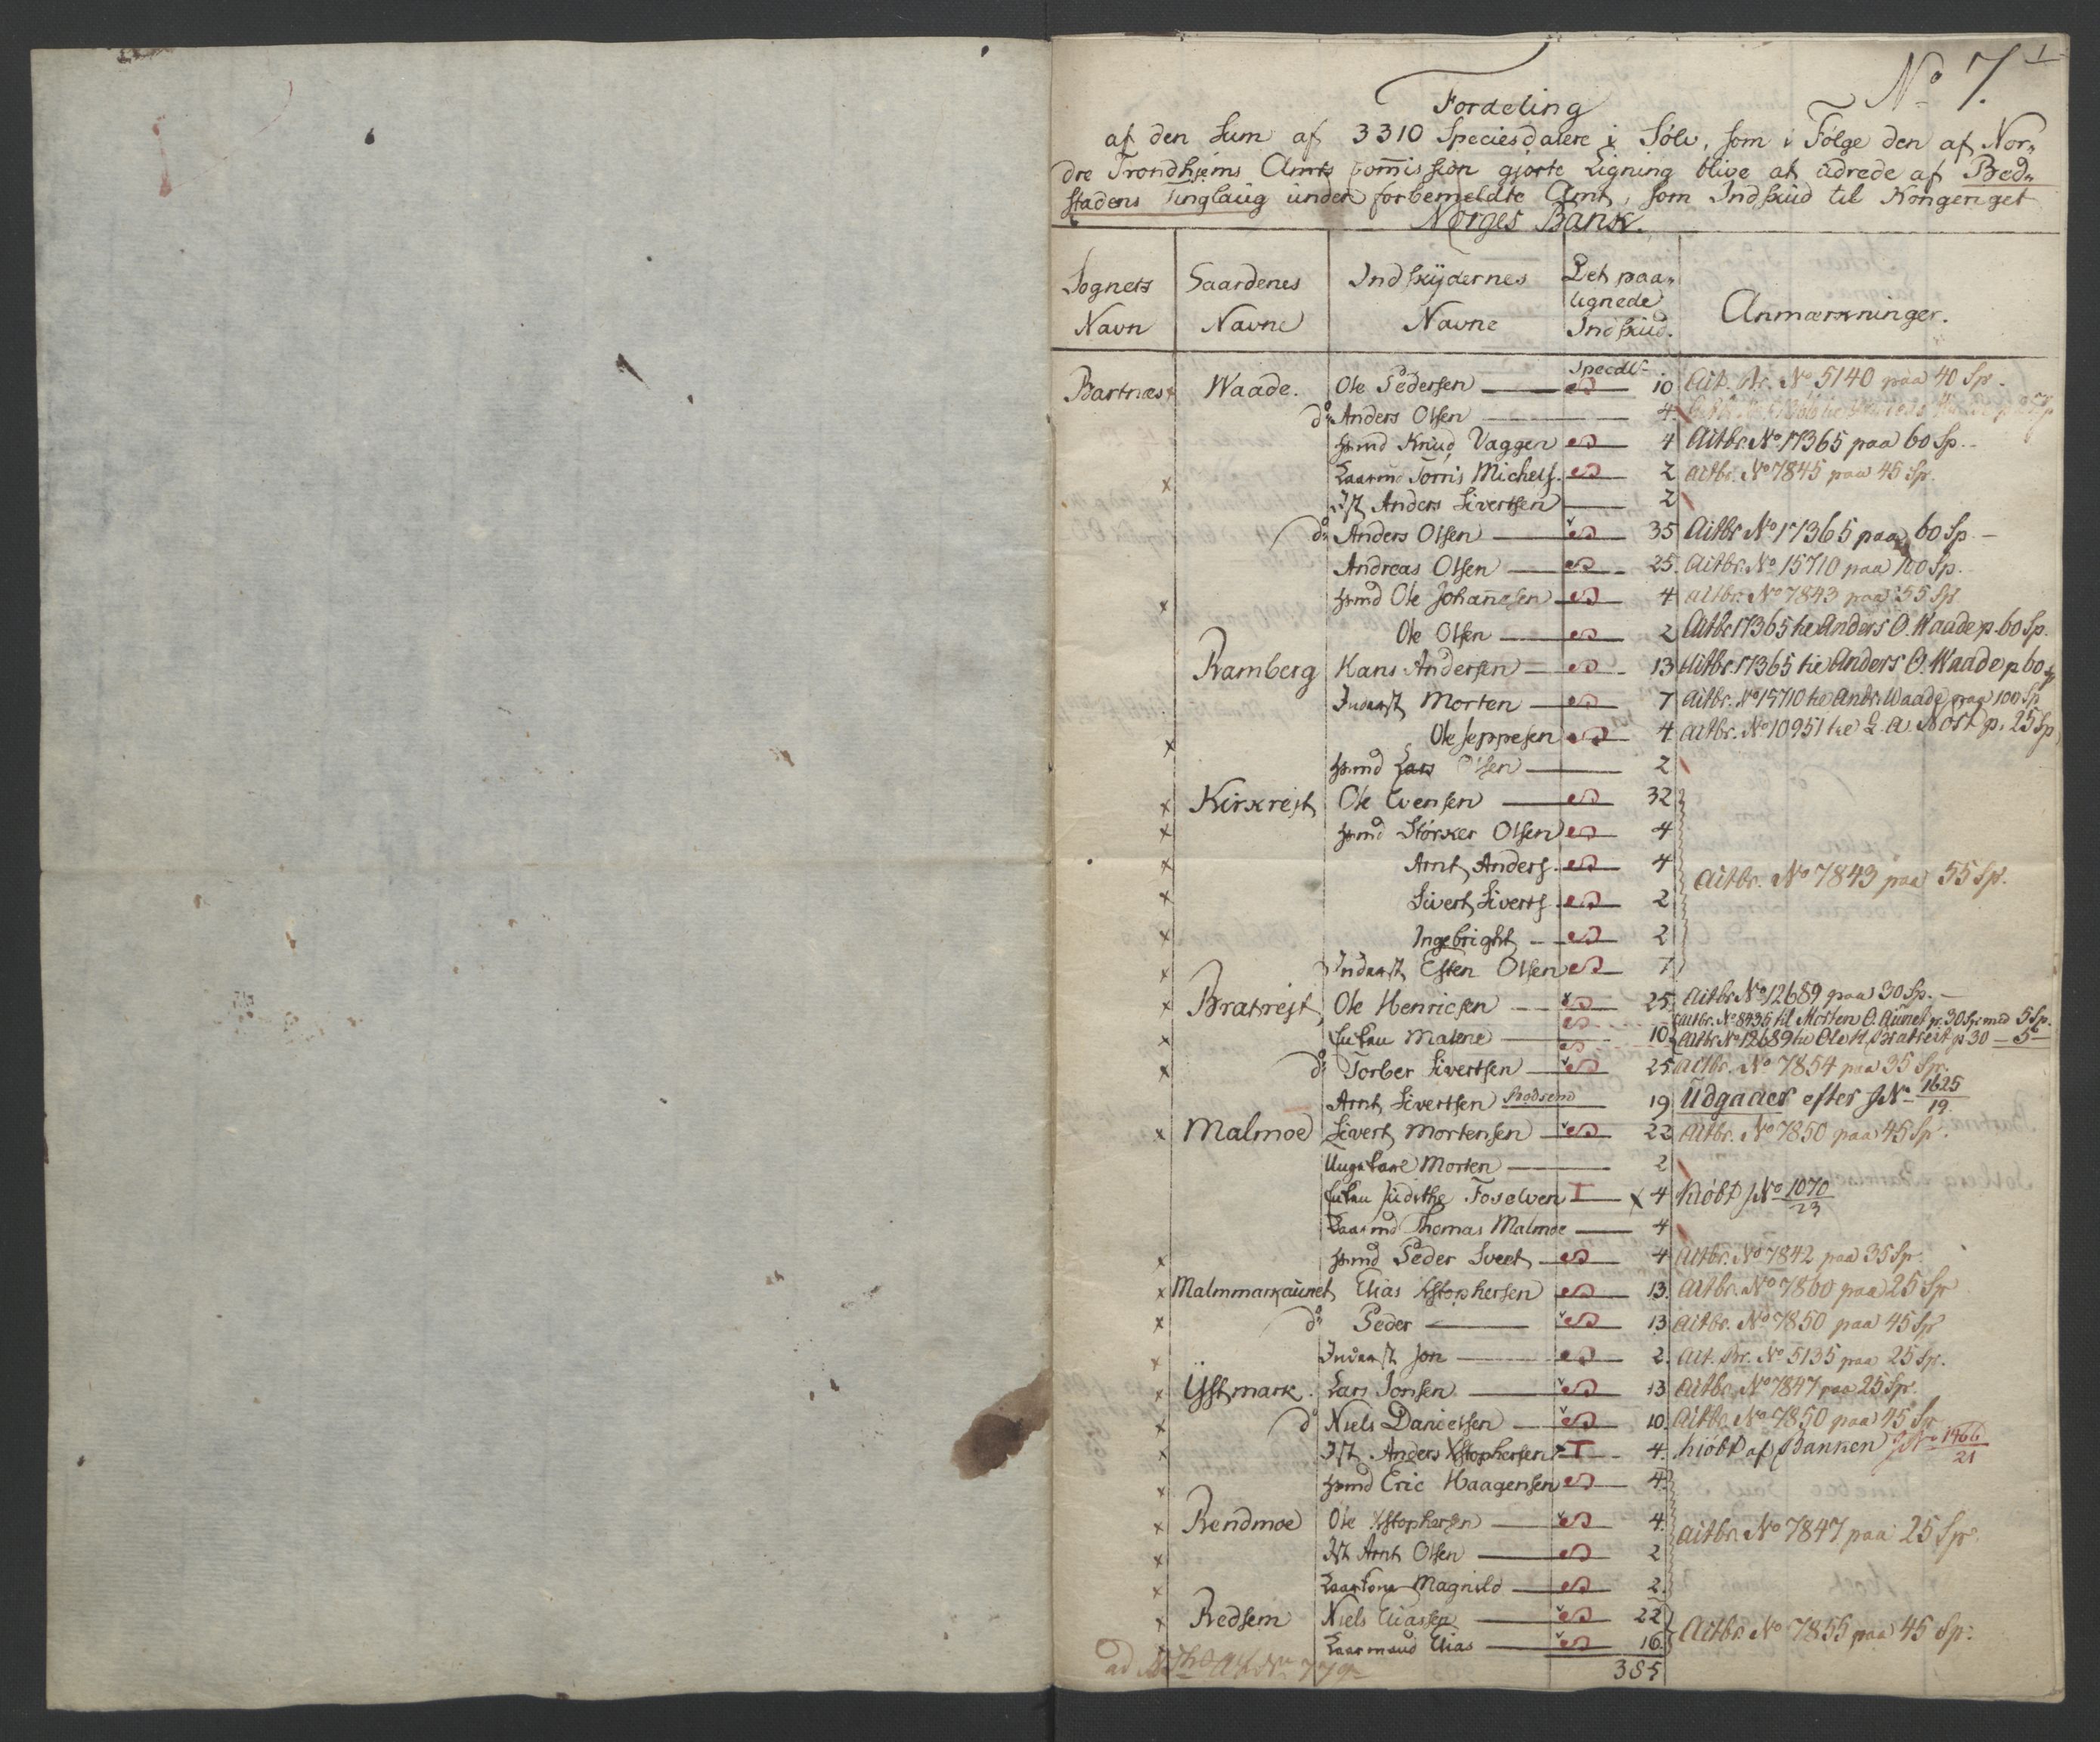 No 7. 1
Fordeling
af den Sum af 3310 Speciesdalere i Sölv, som i Fölge den af Nor„
dre Trondhjems Amts Commission gjorte Ligning blive at udrede af Bed„
stadens Tinglaug under forbemeldte Amt, som Indskud til Kongeriget
Norges Bank.
Sognets Navn | Gaardenes Navne | Indskydernes Navne | Det paa„lignede Indskud. | Anmærkninger.
Specdlr
Bartnæs Waade. Ole Pedersen 10 Act. Br. No 5140 paa 40 Sp.
do Anders Olsen 4
Hsmd Knud Vaggen 4 Actbr. No 17365 paa 60 Sp.
x Kaarmd Torris Michels. 2 Actbr. No 7845 paa 45 Sp.
Ist Anders Sivertsen 2
do Anders Olsen 35 Actbr No 17365 paa 60 Sp.
Andreas Olsen 25. Actbr. No 15710 paa 100 Sp.
x Hsmd Ole Johannesen 4 Actbr. No 7843 paa 55 Sp
Ole Olsen 2 Actbr 17365 til Anders O. Waade p. 60 Sp.
Ramberg Hans Andersen 13 Actbr. 17365 til Anders O. Waade p 60 Sp
Inderst Morten 7 Actbr. No 15710 til Andr. Waade paa 100 Sp
x Ole Jeppesen 4 Actbr. No 10951 til L. A. Høst p. 25 Sp
Hsmd Lars Olsen 2
x Kirkrejt Ole Evensen 32
x Hsmd Störker Olsen 4
x Arnt Anders. 4 Actbr. No 7843 paa 55 Sp.
x Sivert Siverts. 2
x Ingebright 2
x Inderst Esten Olsen 7
x Bratrejt Ole Henricsen 25. Actbr No 12689 paa 30 Sp.
Actbr. No 8436 til Morten O. Aunet p. 30 Sp. med 5 Sp.
x Enken Malene 10 Actbr No 12689 til Ole H. Bratreit p 30 — 5
x do Torber Sivertsen 25 Actbr. No 7854 paa 35 Sp.
Arnt Sivertsen Rodsem 19 Udgaaer efter JNo 1625/19.
x Malmoe Sivert Mortensen 22 Actbr. No 7850 paa 45 Sp.
Ungkarl Morten 2
Enken Judithe Foselven x 4 Kiöbt JNo 1070/23
Kaarmd Thomas Malmoe 4
x Hsmd Peder Sveet 4 Actbr. No 7842 paa 35 Sp.
x Malmmarkaunet Elias Xstophersen 13. Actbr. No 7860 paa 25 Sp
x do Peder 13 Actbr. No 7850 paa 45 Sp
x Inderst Jon 2. Act. Br. No 5135 paa 25 Sp.
x Ystmark. Lars Jonsen 13 Actbr. No 7847 paa 25 Sp.
x do Niels Danielsen 10. Actbr. No 7850 paa 45 Sp
x Ist Anders Xstophersen 4. kiöbt af Banken JNo 1466/21
x Hsmd Eric Haagensen 4.
x Rendmoe Ole Xstophersen 4. Actbr. No 7847 paa 25 Sp.
x Ist Arnt Olsen 2
x Kaarkone Magnild 2.
x Redsem Niels Eliassen 22 Actbr No 7855 paa 45 Sp.
x Kaarmand Elias 16.
385